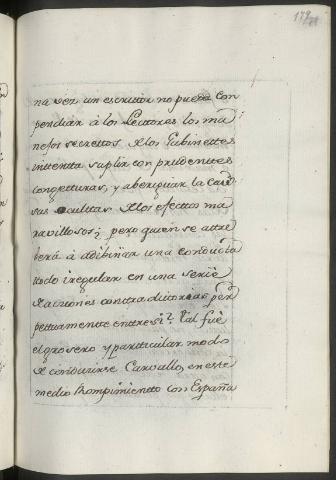 179
na vez un escrittor no pueda com
pendiar à los Lectores los ma
nejos secrettos de los Gabinettes
intentta suplir con prudenttes
congetturas, y aberiguar la cau
sas ocultas de los efecttos ma
ravillosos; pero quien se attre
berà à adibinar una conductta
ttodo irregular en una serie
de acziones conttradictorias per
pettuamente enttresi? Tal fuè
el grosero y parttícular modo
de conducirse Carvallo, en estte
medio Rompimientto con España